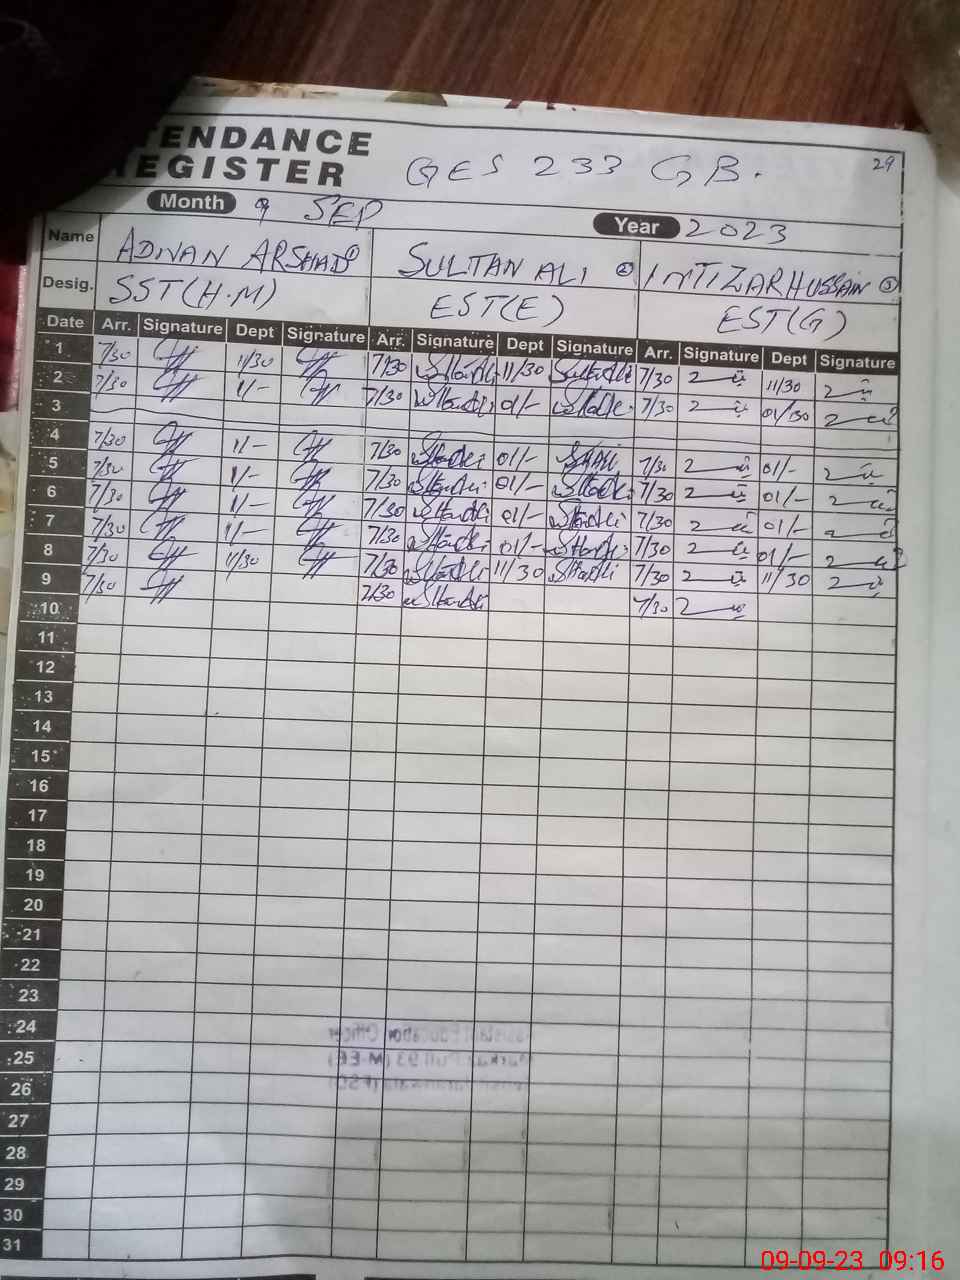 TENDANCE
EGISTER
GES 233 GB.
29
Month 9 SEP
Year 2023
Name ADNAN ARSHAD ① SULTAN ALI ② INTIZAR HUSSAIN ③
Desig. SST(H.M) EST(E) EST(G)
Date Arr. Signature Dept Signature Arr. Signature Dept Signature Arr. Signature Dept Signature
1 7/30 11/30 7/30 11/30 7/30 11/30
2 7/30 1/- 7/30 01/- 7/30 01/30
3
4 7/30 1/- 7/30 01/- 7/30 01/-
5 7/30 1/- 7/30 01/- 7/30 01/-
6 7/30 1/- 7/30 01/- 7/30 01/-
7 7/30 1/- 7/30 01/- 7/30 01/-
8 7/30 11/30 7/30 11/30 7/30 11/30
9 7/30 7/30 7/30
10
11
12
13
14
15
16
17
18
19
20
21
22
23
24
25
26
27
28
29
30
31
09-09-23 09:16